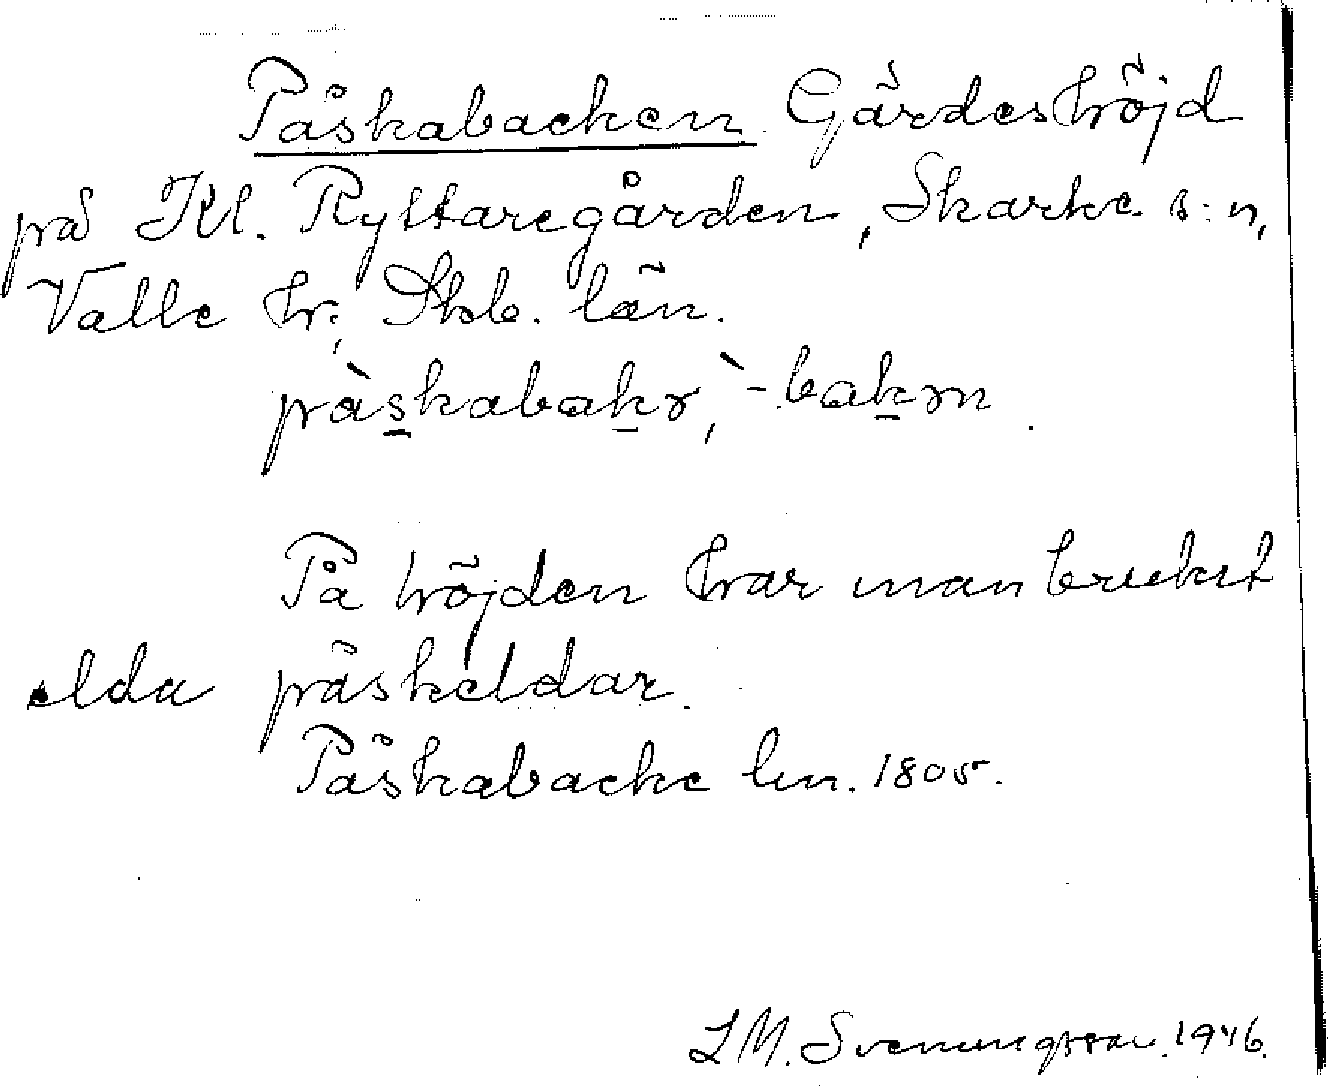 Påskabacken Gärdeshöjd
på Kl. Ryttaregården, Skarke s:n,
Valle hr, Skb. län.
påskabakr, `-bakrn.
På höjden har man brukat
elda påskeldar.
Påskabacke lm. 1805.
L M. Svenungsson. 1946.